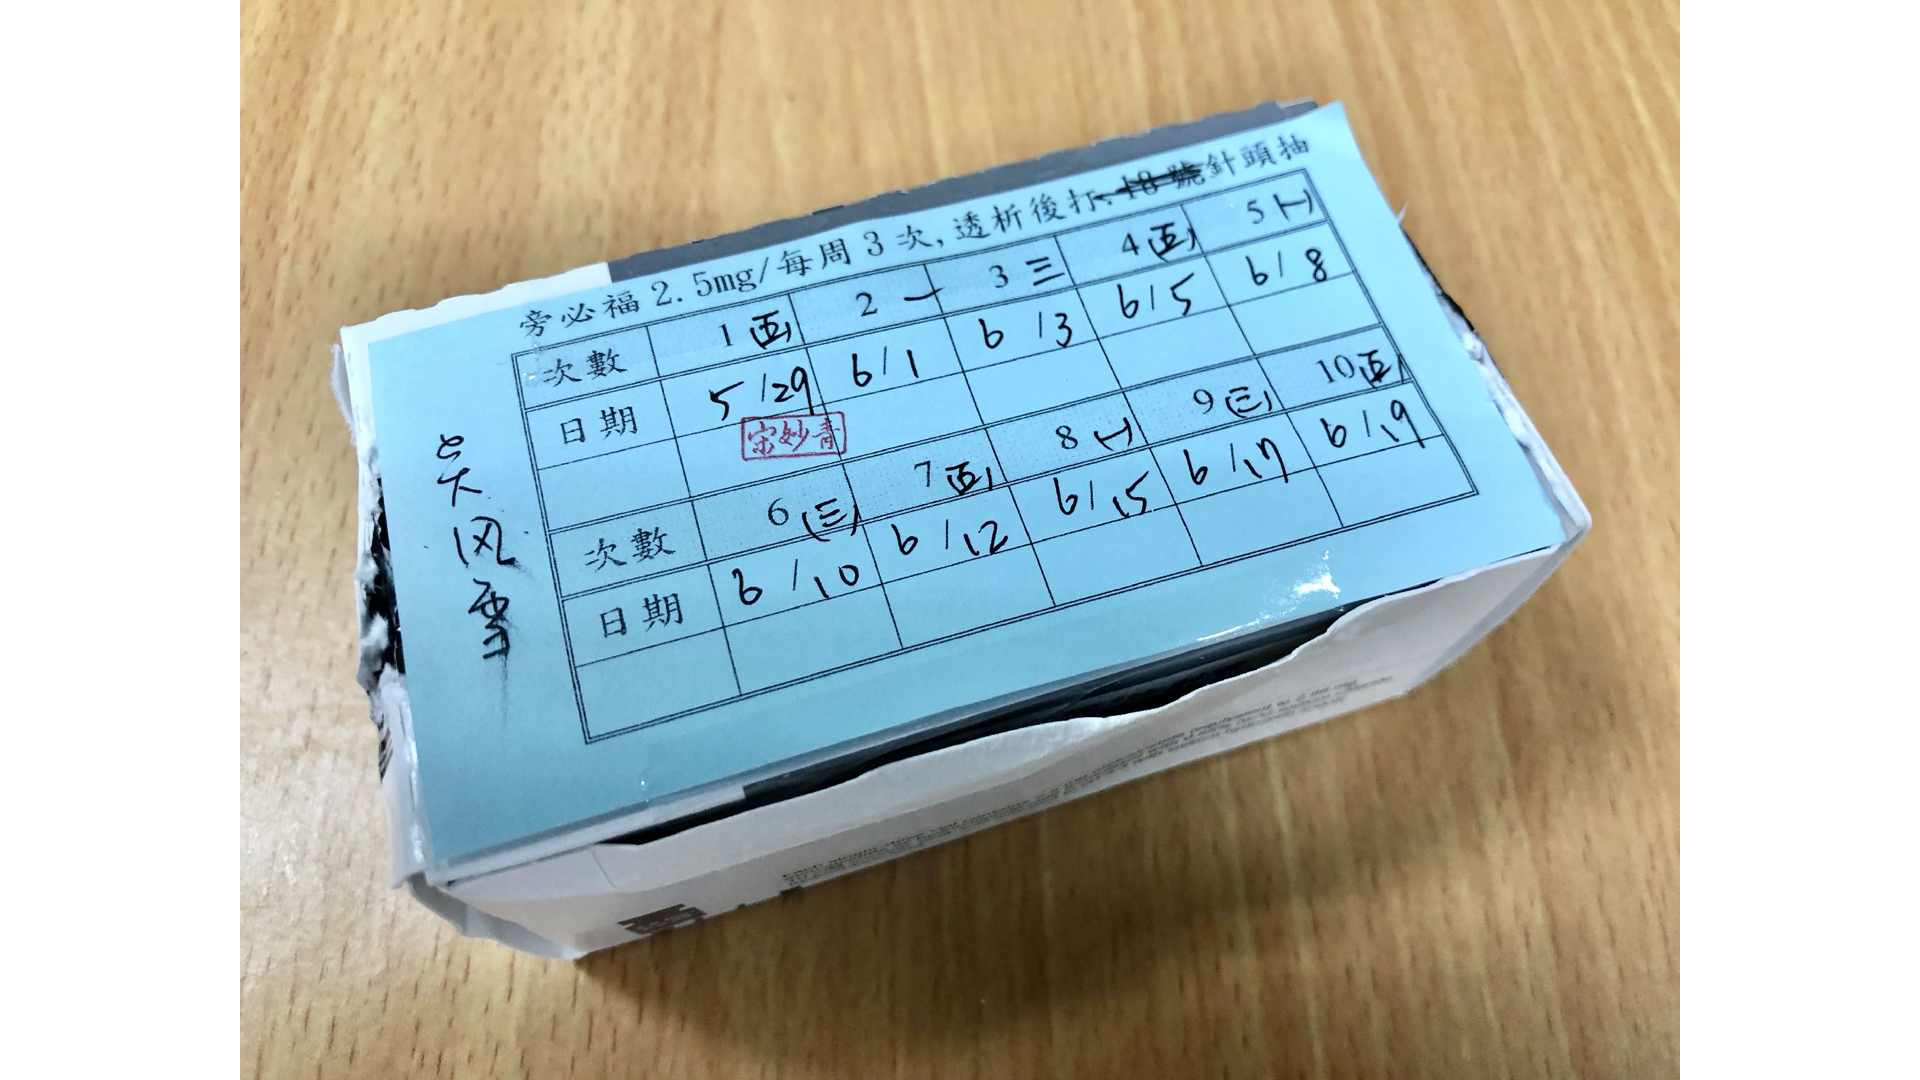 旁必福 2.5mg/每周 3 次,透析後打、18 號針頭抽
次數 1(五) 2 一 3 三 4(五) 5(一)
日期 5/29 6/1 6/3 6/5 6/8
宋妙青
次數 6(三) 7(五) 8(一) 9(三) 10(五)
日期 6/10 6/12 6/15 6/17 6/19
吴风雪